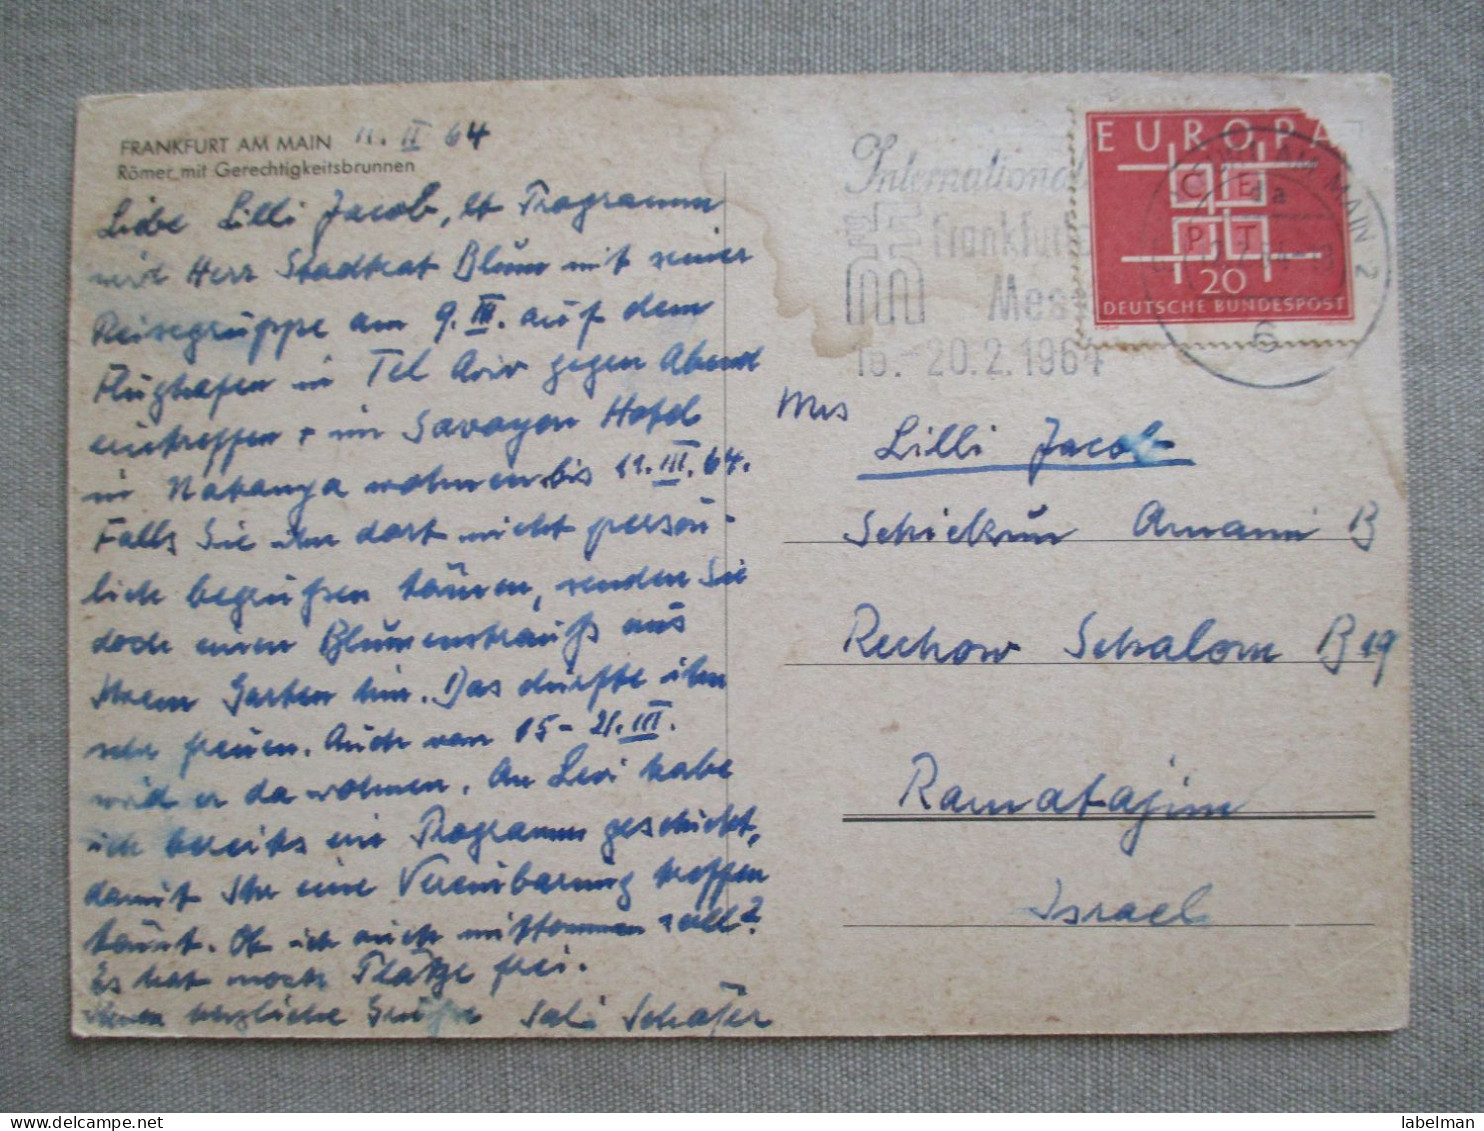 FRANKFURT AM MAIN 11. II 64
Römer mit Gerechtigkeitsbrunnen
Liebe Lilli Jacob, lt Programm
wird Herr Stadtrat Blum mit seiner
Reisegruppe am 9. III. auf dem
Flughafen in Tel Aviv gegen Abend
eintreffen + im Savoyon Hotel
in Natanya wohnen bis 11. III. 64.
Falls Sie ihn dort nicht persön-
lich begrüßen können, senden Sie
doch einen Blumenstrauß aus
Ihrem Garten hin. Das dürfte ihn
sehr freuen. Auch vom 15 - 21. III.
wird er da wohnen. An Levi habe
ich bereits ein Programm geschickt,
damit Ihr eine Vereinbarung treffen
könnt. Ob ich auch mitkommen soll?
Es hat noch Plätze frei.
Ihnen herzliche Grüße Sali Schäfer
Internationale
Frankfurter
Messe
16. - 20.2.1964
EUROPA
CEPT
20
DEUTSCHE BUNDESPOST
AM MAIN 2
6
Mrs
Lilli Jacob
Schickun Amami B
Rechow Schalom B 19
Ramatajim
Israel
labelman
www.delcampe.net